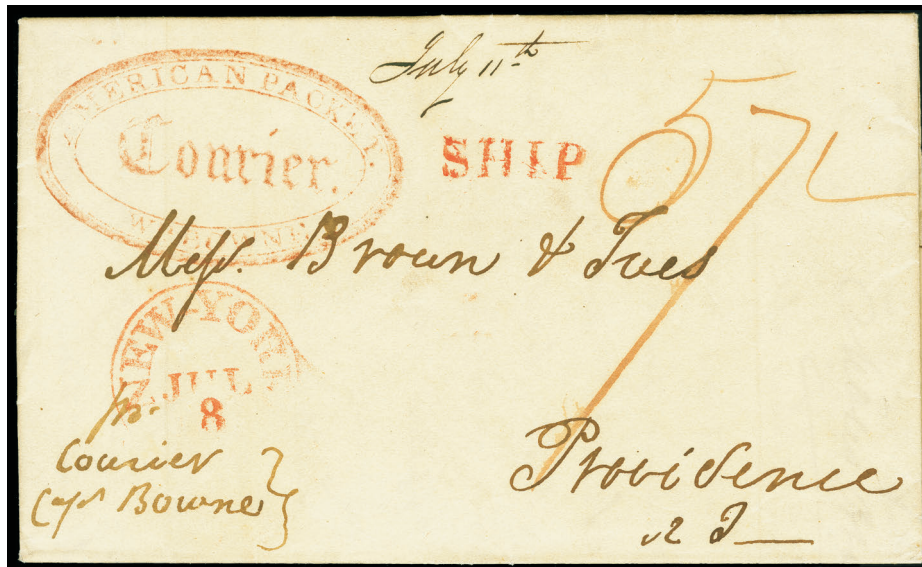 July 11th
AMERICAN PACKET.
Courier.
SHIP
57
Messrs. Brown & Ives
NEW-YORK
JUL
8
pr.
Courier
Capt Bowne
Providence
R I